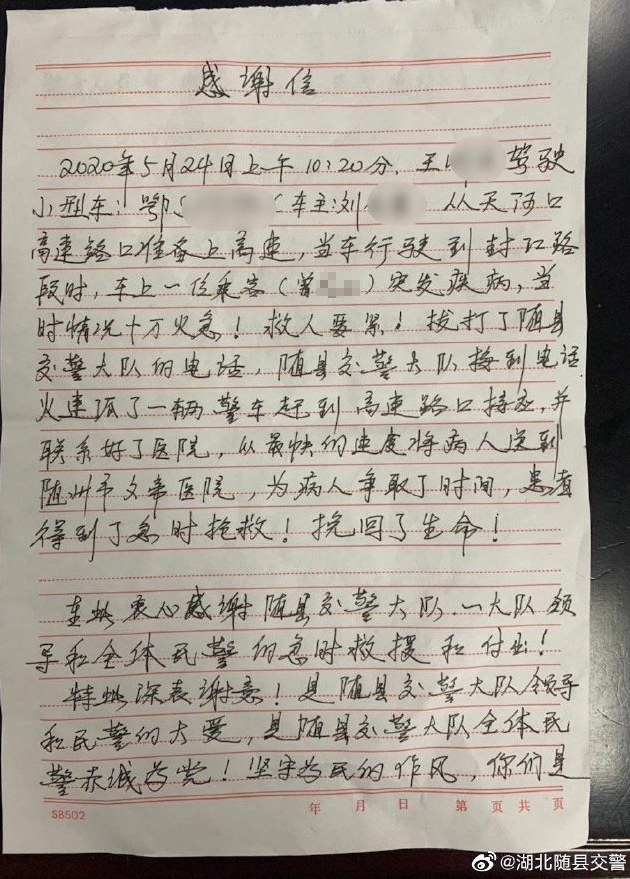 感谢信
2020年5月24日上午10:20分.王 驾驶
小型车:鄂 (车主:刘 从天河口
高速路口准备上高速,当车行驶到封江路
段时,车上一位乘客(曾 )突发疾病,当
时情况十万火急!救人要紧!拔打了随县
交警大队的电话,随县交警大队接到电话
火速派了一辆警车赶到高速路口接应,并
联系好了医院,以最快的速度将病人送到
随州市文帝医院,为病人争取了时间,患者
得到了急时抢救!挽回了生命!
在此衷心感谢随县交警大队.一大队领
导和全体民警的急时救援和付出!
特此深表谢意!是随县交警大队领导
和民警的大爱,是随县交警大队全体民
警赤诚为党!坚守为民的作风,你们是
SB502 年 月 日 第 页 共 页
@湖北随县交警